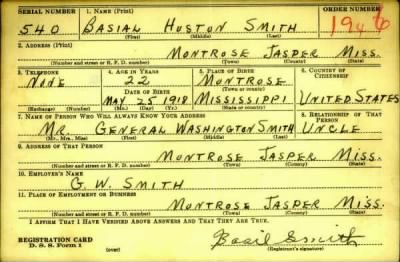 SERIAL NUMBER 1. NAME (Print) ORDER NUMBER
540 BASIAL HUSTON SMITH 1946
(First) (Middle) (Last)
2. ADDRESS (Print)
MONTROSE JASPER MISS.
(Number and street or R. F. D. number) (Town) (County) (State)
3. TELEPHONE 4. AGE IN YEARS 5. PLACE OF BIRTH 6. COUNTRY OF CITIZENSHIP
NONE 22 MONTROSE
DATE OF BIRTH (Town or county)
MAY 25 1918 MISSISSIPPI UNITED STATES
(Exchange) (Number) (Mo.) (Day) (Yr.) (State or country)
7. NAME OF PERSON WHO WILL ALWAYS KNOW YOUR ADDRESS 8. RELATIONSHIP OF THAT PERSON
MR. GENERAL WASHINGTON SMITH UNCLE
(Mr., Mrs., Miss) (First) (Middle) (Last)
9. ADDRESS OF THAT PERSON
MONTROSE JASPER MISS.
(Number and street or R. F. D. number) (Town) (County) (State)
10. EMPLOYER'S NAME
G. W. SMITH
11. PLACE OF EMPLOYMENT OR BUSINESS
MONTROSE JASPER MISS.
(Number and street or R. F. D. number) (Town) (County) (State)
I AFFIRM THAT I HAVE VERIFIED ABOVE ANSWERS AND THAT THEY ARE TRUE.
REGISTRATION CARD
D. S. S. Form 1 (over) Basil Smith
(Registrant's signature)